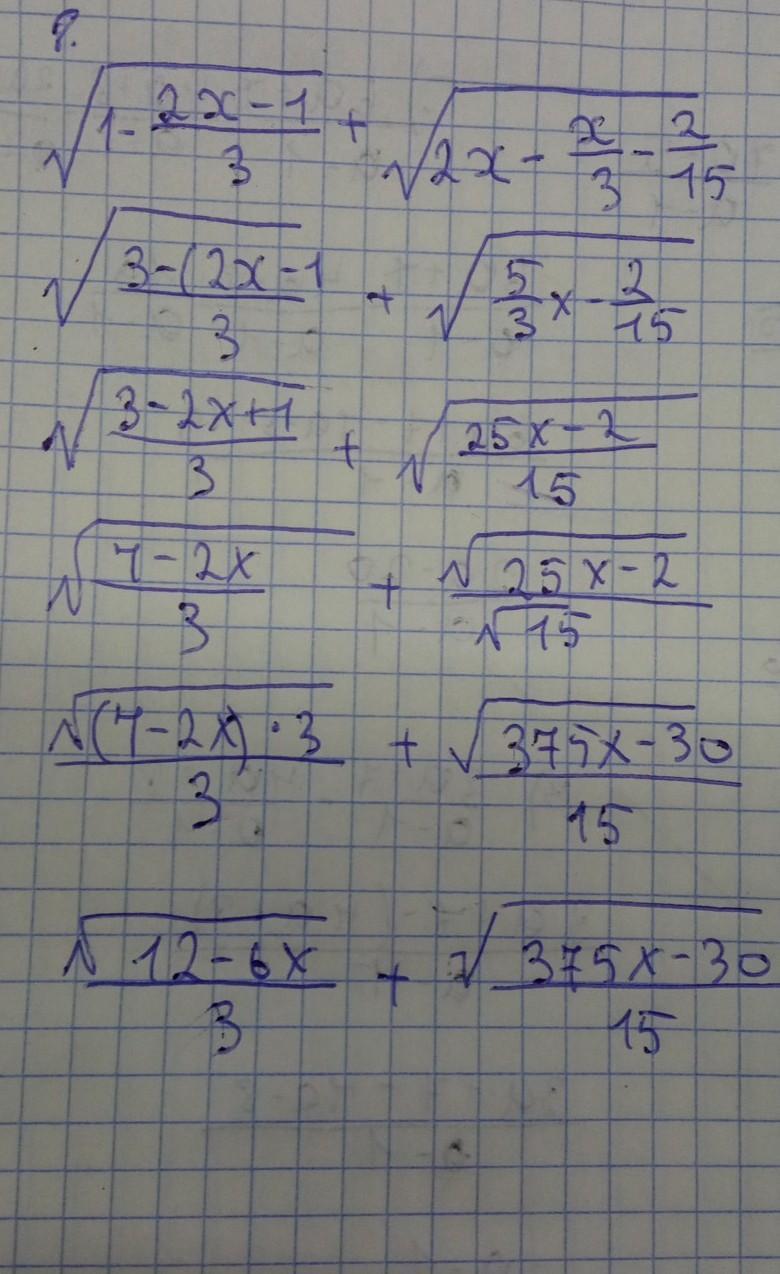 8.
√(1 - (2x - 1)/3) + √(2x - x/3 - 2/15)
√((3 - (2x - 1)/3) + √(5/3 x - 2/15)
√((3 - 2x + 1)/3) + √((25x - 2)/15)
√((4 - 2x)/3) + √(25x - 2)/√15
√((4 - 2x) · 3)/3 + √(375x - 30)/15
√(12 - 6x)/3 + √(375x - 30)/15